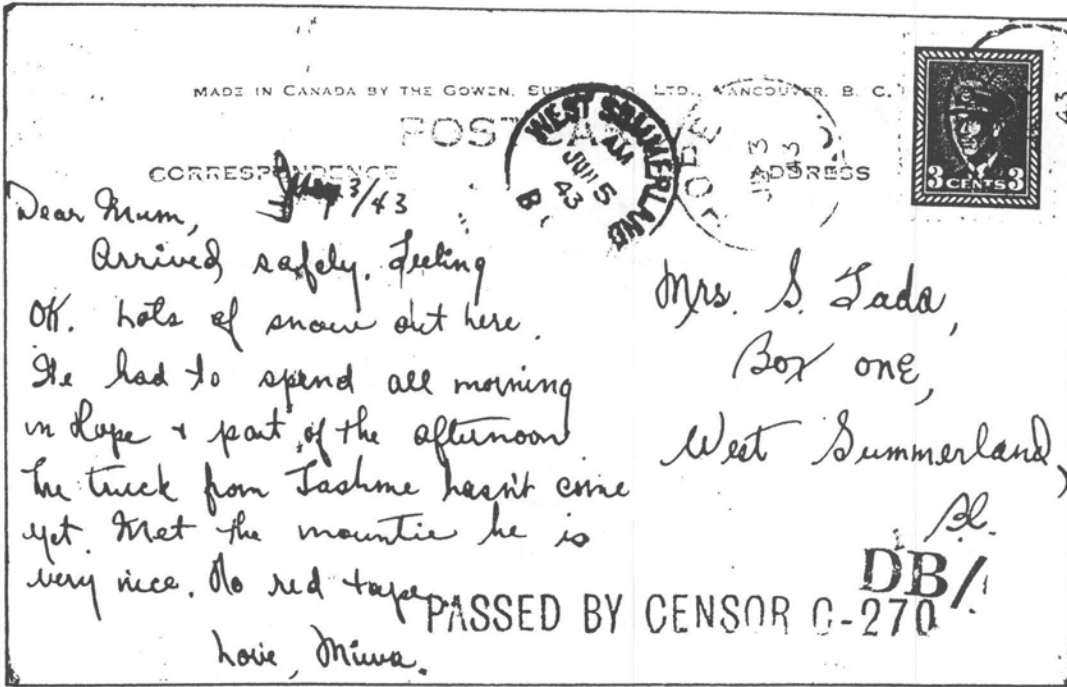 MADE IN CANADA BY THE GOWEN, SU CO. LTD., VANCOUVER, B. C.
POST CA
CORRESPONDENCE
ADDRESS
WEST SUMMERLAND
AM
JUN 5
43
B
HOPE
43
3 CENTS 3
43
3/43
Dear Mum,
Arrived safely. Feeling
OK. Lots of snow out here.
We had to spend all morning
in Hope + part of the afternoon
The truck from Tashme hasn't come
yet. Met the mountie he is
very nice. No red tape.
Love, Miwa.
Mrs. S. Tada,
Box one,
West Summerland,
B.C.
DB/
PASSED BY CENSOR C-270